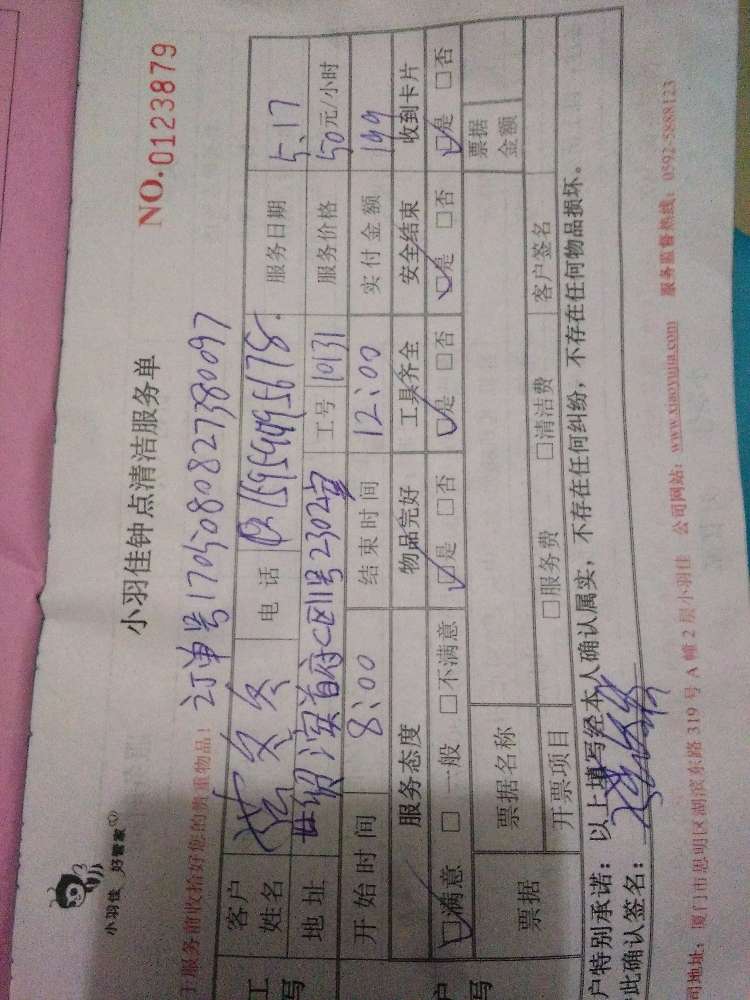 小羽佳 好管家
小羽佳钟点清洁服务单
NO.0123879
于服务前收拾好您的贵重物品！ 订单号1705080827380097
客户姓名 电话 15959495678 服务日期 5.17
地址 滨首府C区11号2302室 工号 10131 服务价格 50元/小时
开始时间 8:00 结束时间 12:00 实付金额 199
服务态度 物品完好 工具齐全 安全结束 收到卡片
☑满意 □一般 □不满意 ☑是 □否 ☑是 □否 ☑是 □否 ☑是 □否
票据 票据名称 票据金额
开票项目 □服务费 □清洁费 客户签名
户特别承诺：以上填写经本人确认属实，不存在任何纠纷，不存在任何物品损坏。
此确认签名：
司地址：厦门市思明区湖滨东路319号A幢2层小羽佳 公司网站：www.xiaoyujia.com 服务监督热线：0592-5888123